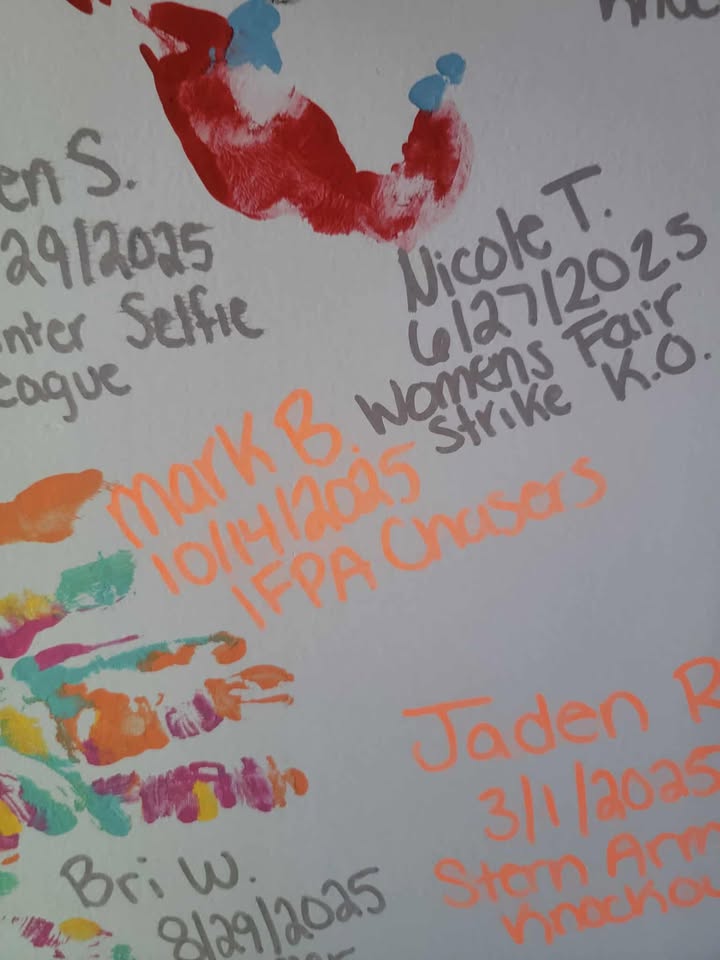 en S.
29/2025
nter Selfie
eague
Nicole T.
6/27/2025
Womens Fair
Strike K.O.
Mark B.
10/14/2025
IFPA Chasers
Jaden R
3/1/2025
Stern Arm
Knockou
Bri W.
8/29/2025